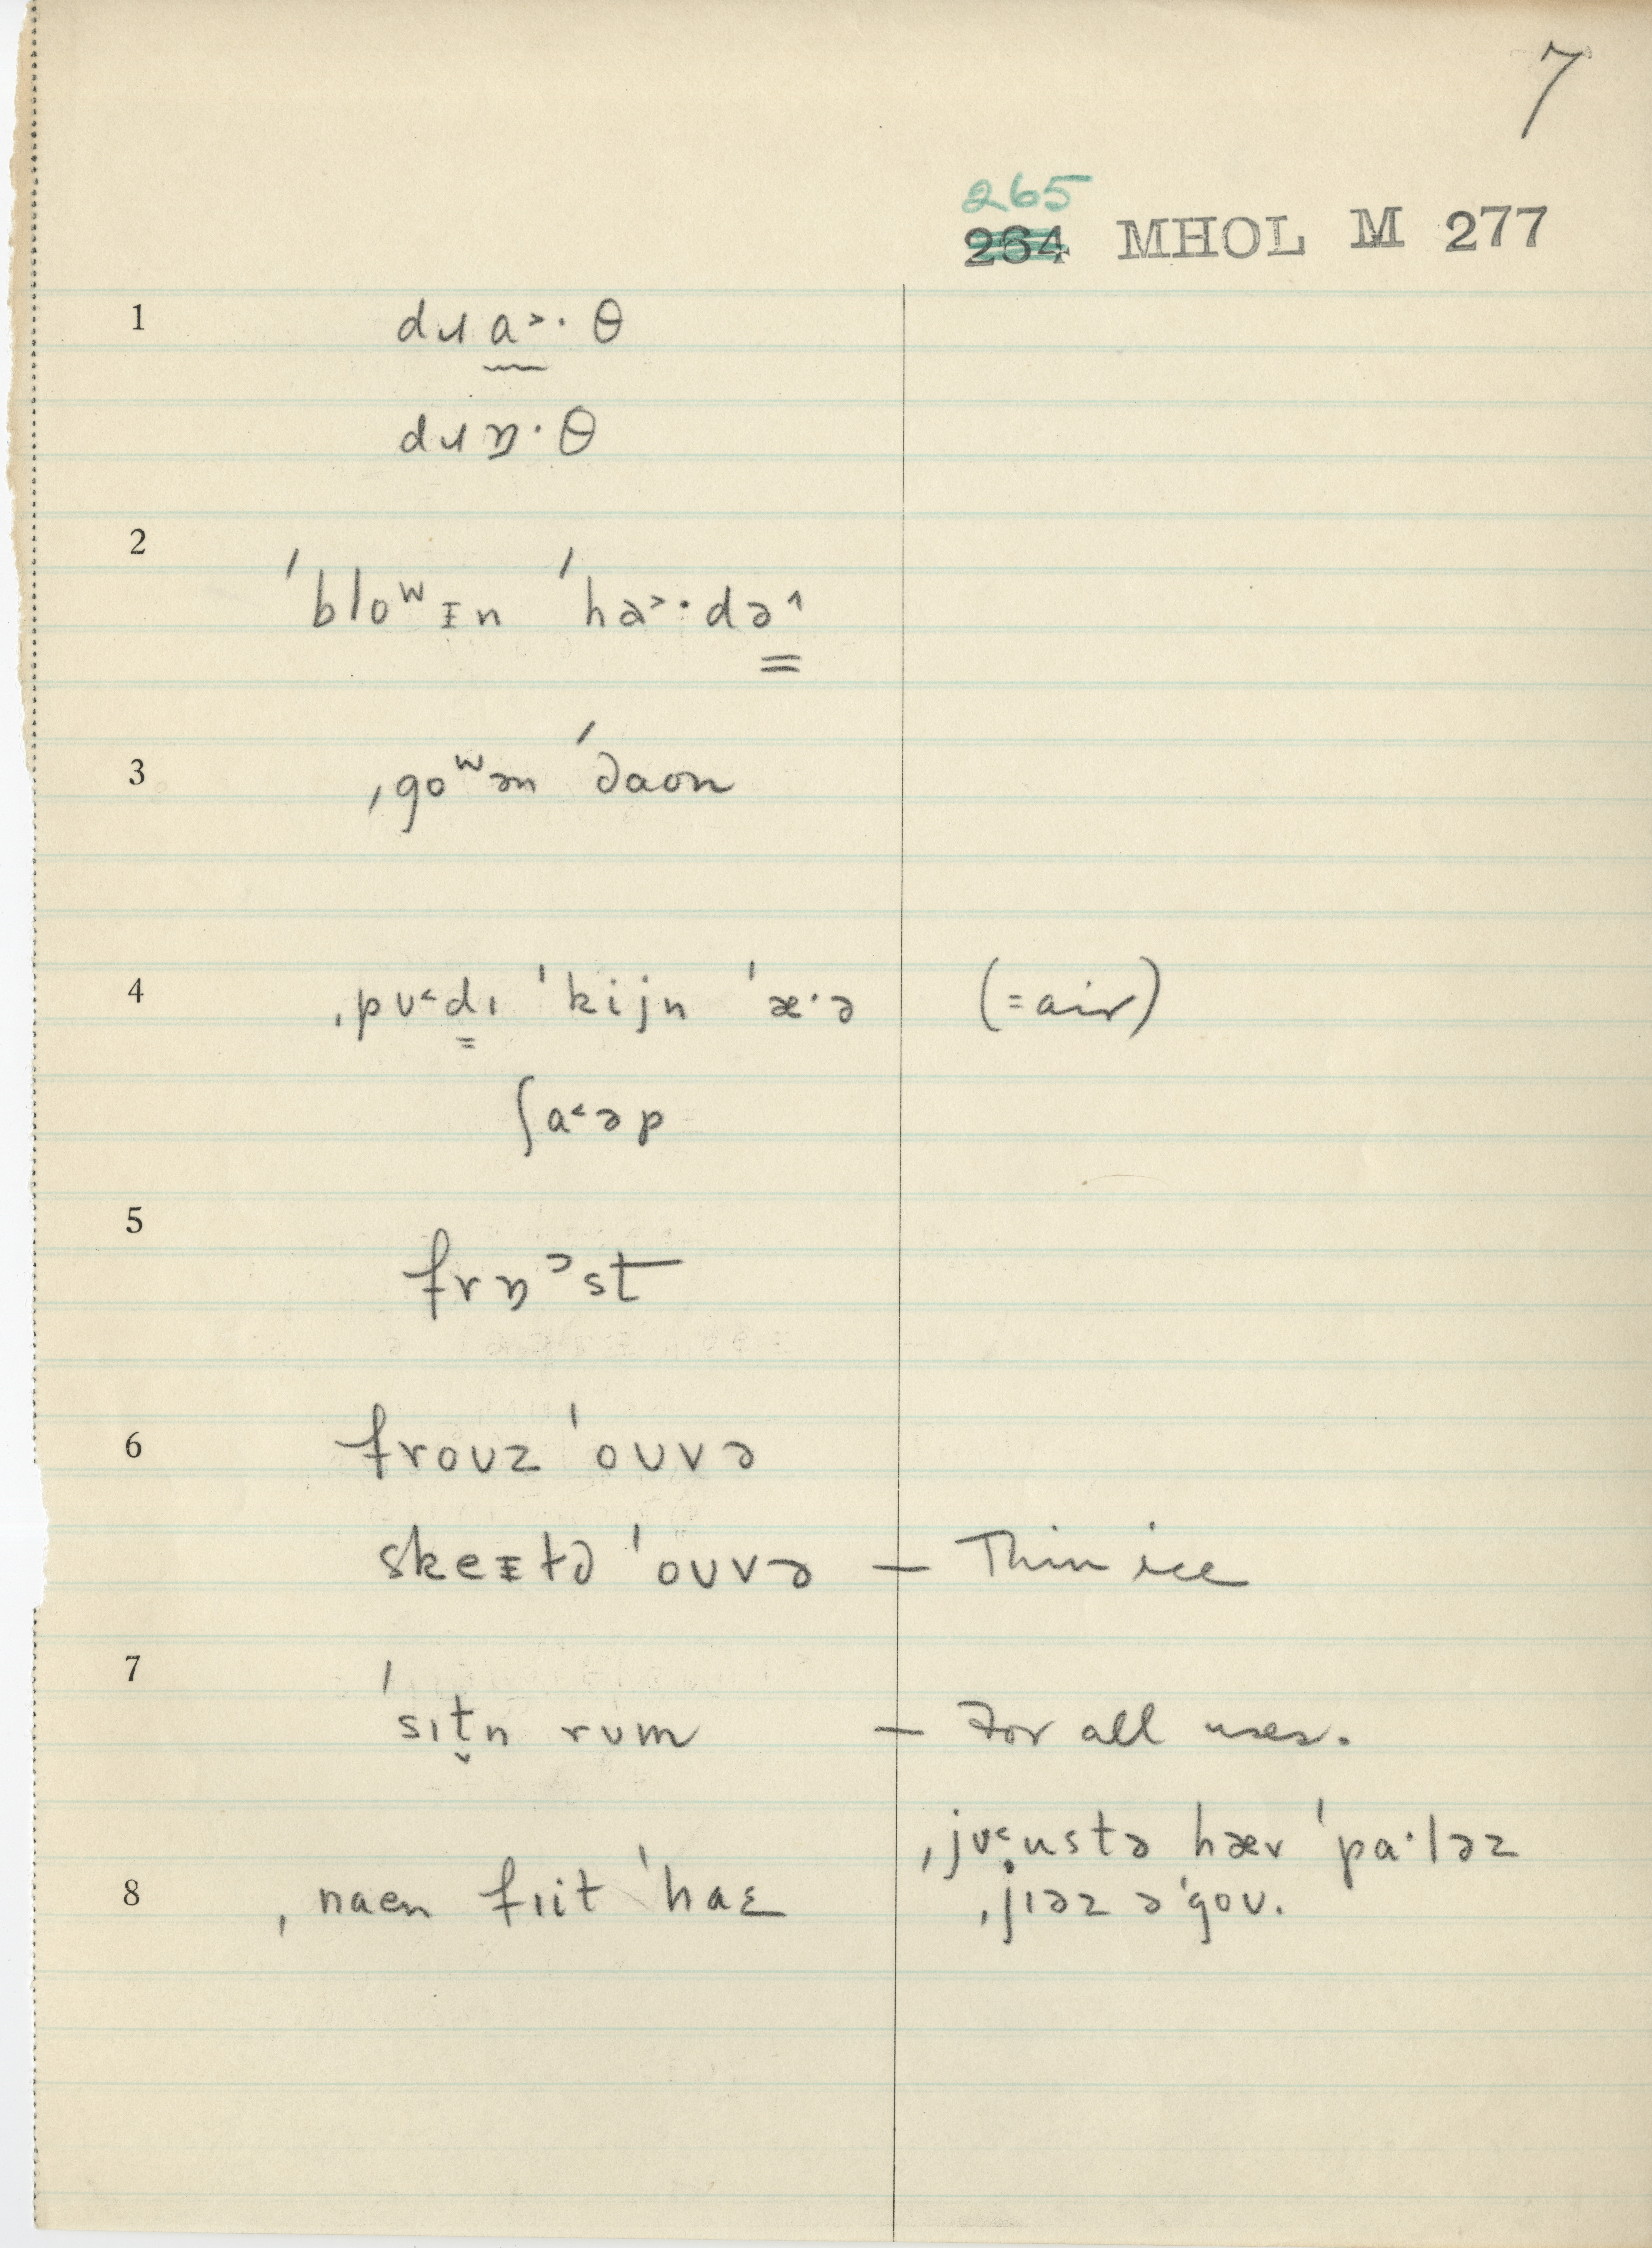 7
265
264 MHOL M 277
1 dɹa˃·θ
dɹɒ·θ
2 ˈbloʷɪn ˈha˃·də˄
3 ˌgoʷən ˈdaon
4 ˌpʊ˂dɪ ˈkijn ˈæ·ə (=air)
ʃa˂əp
5 frɒᵓst
6 froʊz ˈoʊvə
skeɪtə ˈoʊvə — Thin ice
7 ˈsɪt̬n rʊm — For all uses.
8 ˌnaen fɪit ˈhaɛ ˌjʊ˂ustə hæv ˈpa·ləz
ˌjɪəz əˈgoʊ.